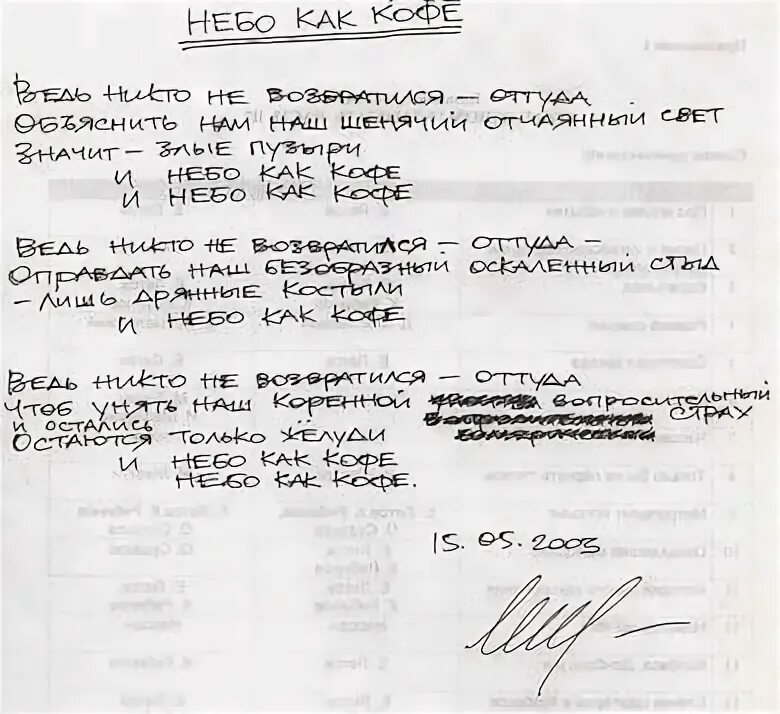 НЕБО КАК КОФЕ
ВЕДЬ НИКТО НЕ ВОЗВРАТИЛСЯ – ОТТУДА
ОБЪЯСНИТЬ НАМ НАШ ЩЕНЯЧИЙ ОТЧАЯННЫЙ СВЕТ
ЗНАЧИТ – ЗЛЫЕ ПУЗЫРИ
И НЕБО КАК КОФЕ
И НЕБО КАК КОФЕ
ВЕДЬ НИКТО НЕ ВОЗВРАТИЛСЯ – ОТТУДА –
ОПРАВДАТЬ НАШ БЕЗОБРАЗНЫЙ ОСКАЛЕННЫЙ СТЫД
– ЛИШЬ ДРЯННЫЕ КОСТЫЛИ
И НЕБО КАК КОФЕ
ВЕДЬ НИКТО НЕ ВОЗВРАТИЛСЯ – ОТТУДА
ЧТОБ УНЯТЬ НАШ КОРЕННОЙ ВОПРОСИТЕЛЬНЫЙ
СТРАХ
И ОСТАЛИСЬ
ОСТАЮТСЯ ТОЛЬКО ЖЁЛУДИ
И НЕБО КАК КОФЕ
НЕБО КАК КОФЕ.
15.05.2003